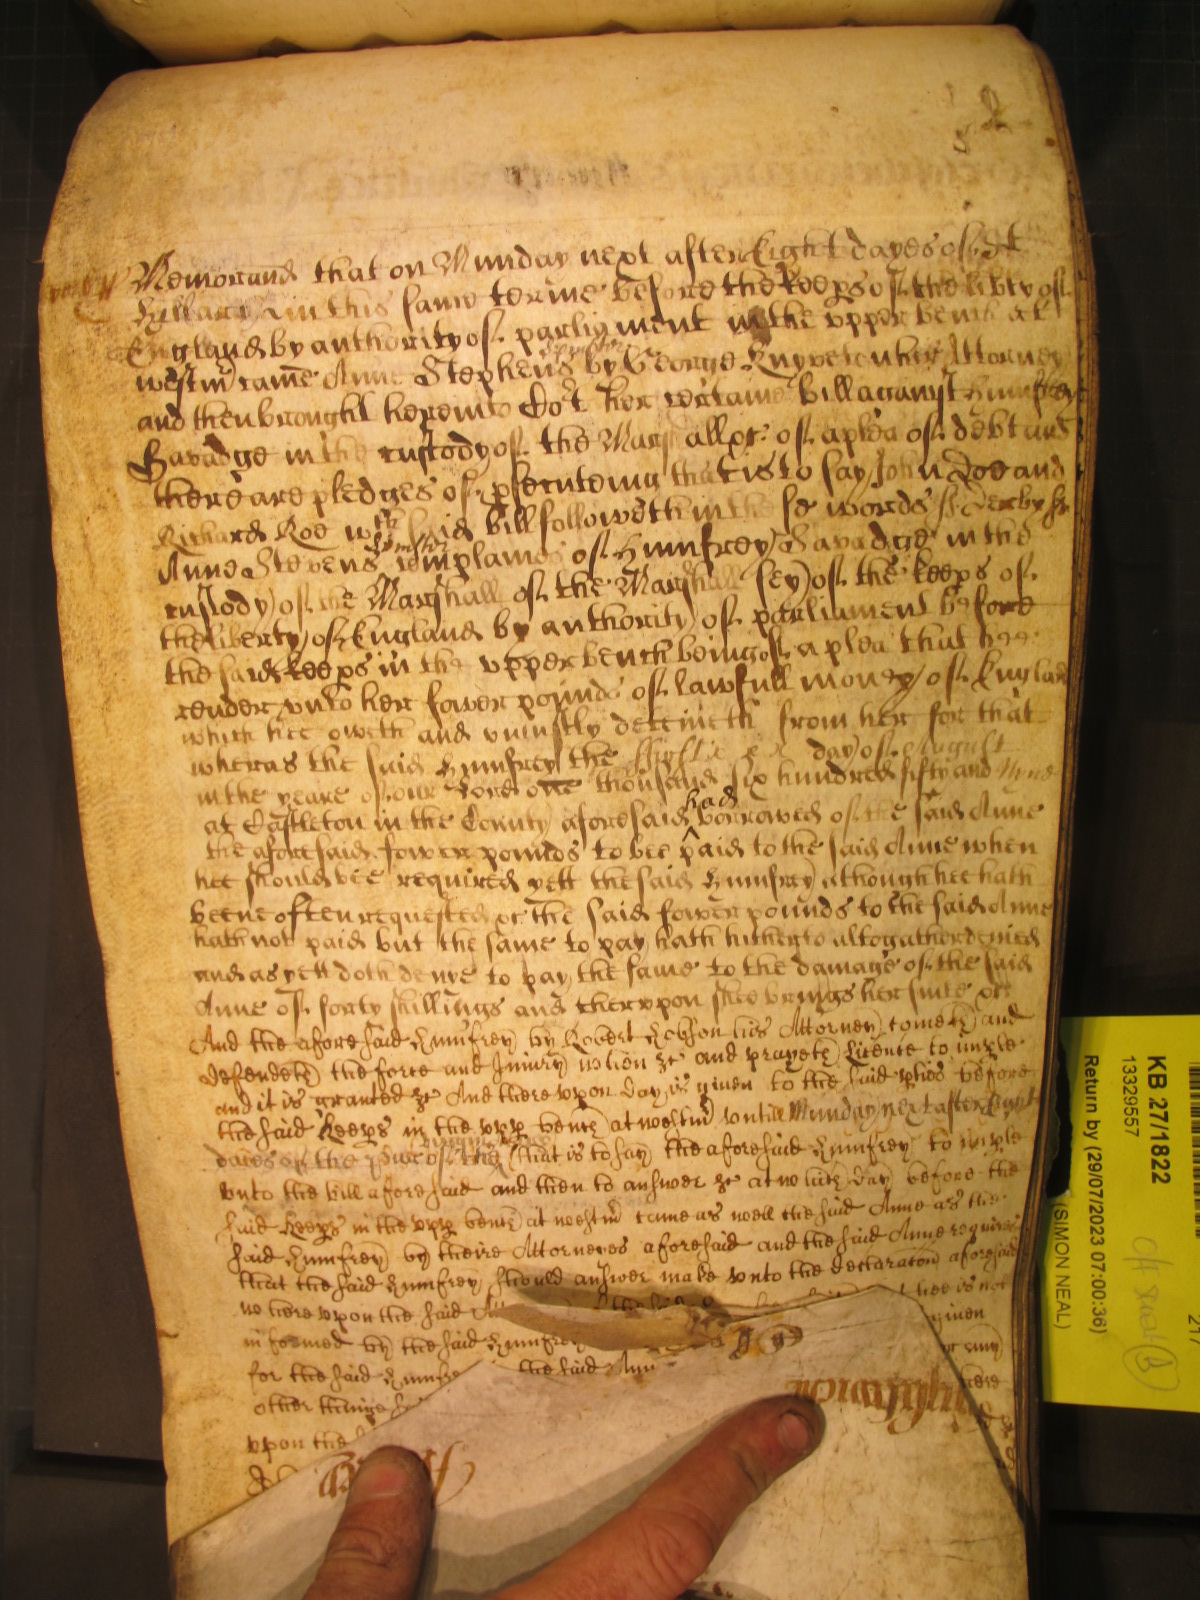 Memorand that on Munday next after Eight dayes of St
Hillary in this same terme before the keeps of the libty of
England by authority of parliament in the upper bench at
westm came Anne Stephens spinster by George Knyveton her Attorney
and then brought here into Cort her certaine bill against Humfrey
Savadge in the custody of the Marshall &c of a plea of debt and
there are pledges of psecuteing that is to say John Doe and
Richard Roe wch said bill followeth in these words ss Derby ss
Anne Stevens spinster complaines of Humfrey Savadge in the
custody of the Marshall of the Marshallsey of the keeps of
the liberty of England by authority of parliament before
the said keeps in the upper bench being of a plea that hee
render unto her fower pounds of lawfull money of England
which hee oweth and uniustly deteineth from her for that
wheras the said Humfrey the day of August
in the yeare of our Lord one thousand six hundred fifty and
at Castleton in the County aforesaid had borrowed of the said Anne
the aforesaid fower pounds to bee paid to the said Anne when
hee should bee required yett the said Humfrey although hee hath
beene often requested &c the said fower pounds to the said Anne
hath not paid but the same to pay hath hitherto altogather denied
and as yett doth denye to pay the same to the damage of the said
Anne of forty shillings and therupon shee brings her suite &c
And the aforesaid Humfrey by Robert Hobson his Attorney cometh and
defendeth the force and Iniury when &c and prayeth Licence to imple
and it is granted &c And thereupon day is given to the said pties before
the said Keeps in the upp bench at westm untill Munday next after Eight
daies of the that is to say the aforesaid Humfrey to imple
unto the bill aforesaid and then to answer &c at which day before the
said Keeps in the upp bench at westm came as well the said Anne as the
said Humfrey by theire Attorneyes aforesaid and the said Anne requires
that the said Humfrey should answer make unto the declaraton aforesaid
whereupon the said hee is not
informed by the said Humfrey given
for the said Humfrey the said Ann
other thinge
upon the
KB 27/1822
13329557
Return by (29/07/2023 07:00:36)
(SIMON NEAL)
217